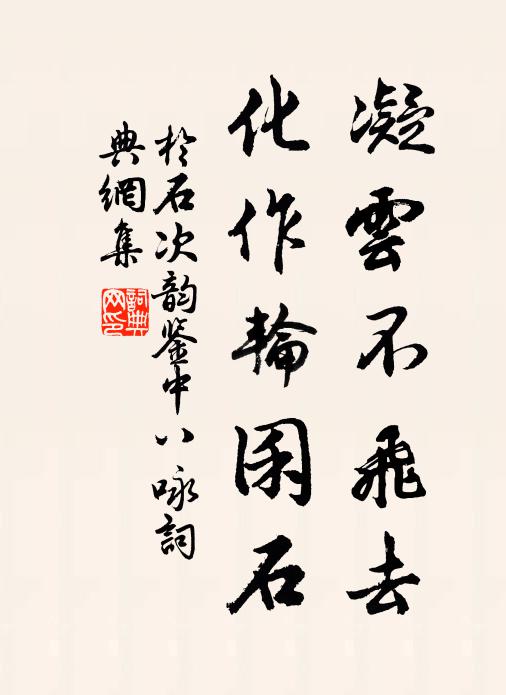 凝雲不飛去
化作輪囷石
於石次韵鉴中八咏詞
典網集
詞典网印